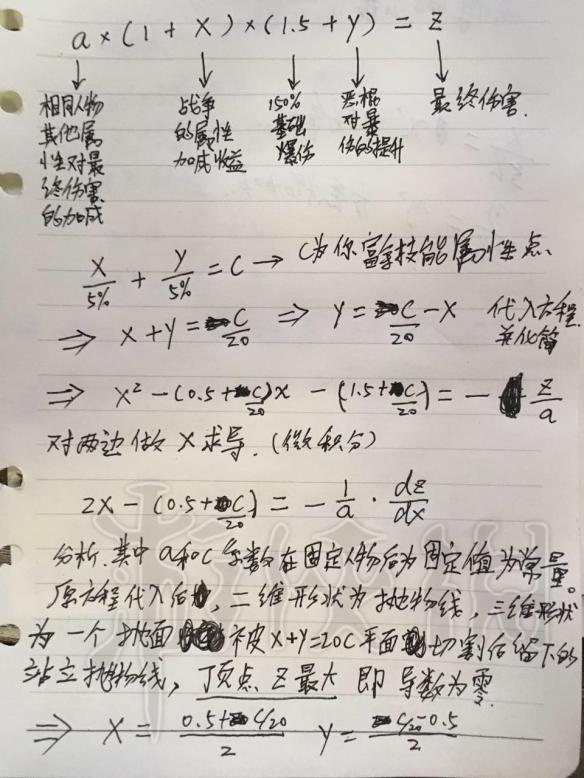 a × (1 + X) × (1.5 + y) = Z
相同人物
其他属
性对最
终伤害
的加成
战争
的属性
加成收益
150%
基础
爆伤
恶棍
对暴
伤的提升
最终伤害.
X/5% + Y/5% = C → C为你富余技能属性点、
⇒ X+Y = C/20 ⇒ Y = C/20 - X 代入方程
并化简
⇒ X² - (0.5 + C/20)x - (1.5 + C/20) = - Z/a
对两边做X求导. (微积分)
2X - (0.5 + C/20) = - 1/a · dz/dx
分析. 其中a和C系数在固定人物后为固定值为常量。
原方程代入后, 二维形状为抛物线, 三维形状
为一个抛面被X+Y=20C平面切割后留下的
站立抛物线, 顶点Z最大 即 导数为零.
⇒ X = (0.5 + C/20)/2 Y = (C/20 - 0.5)/2